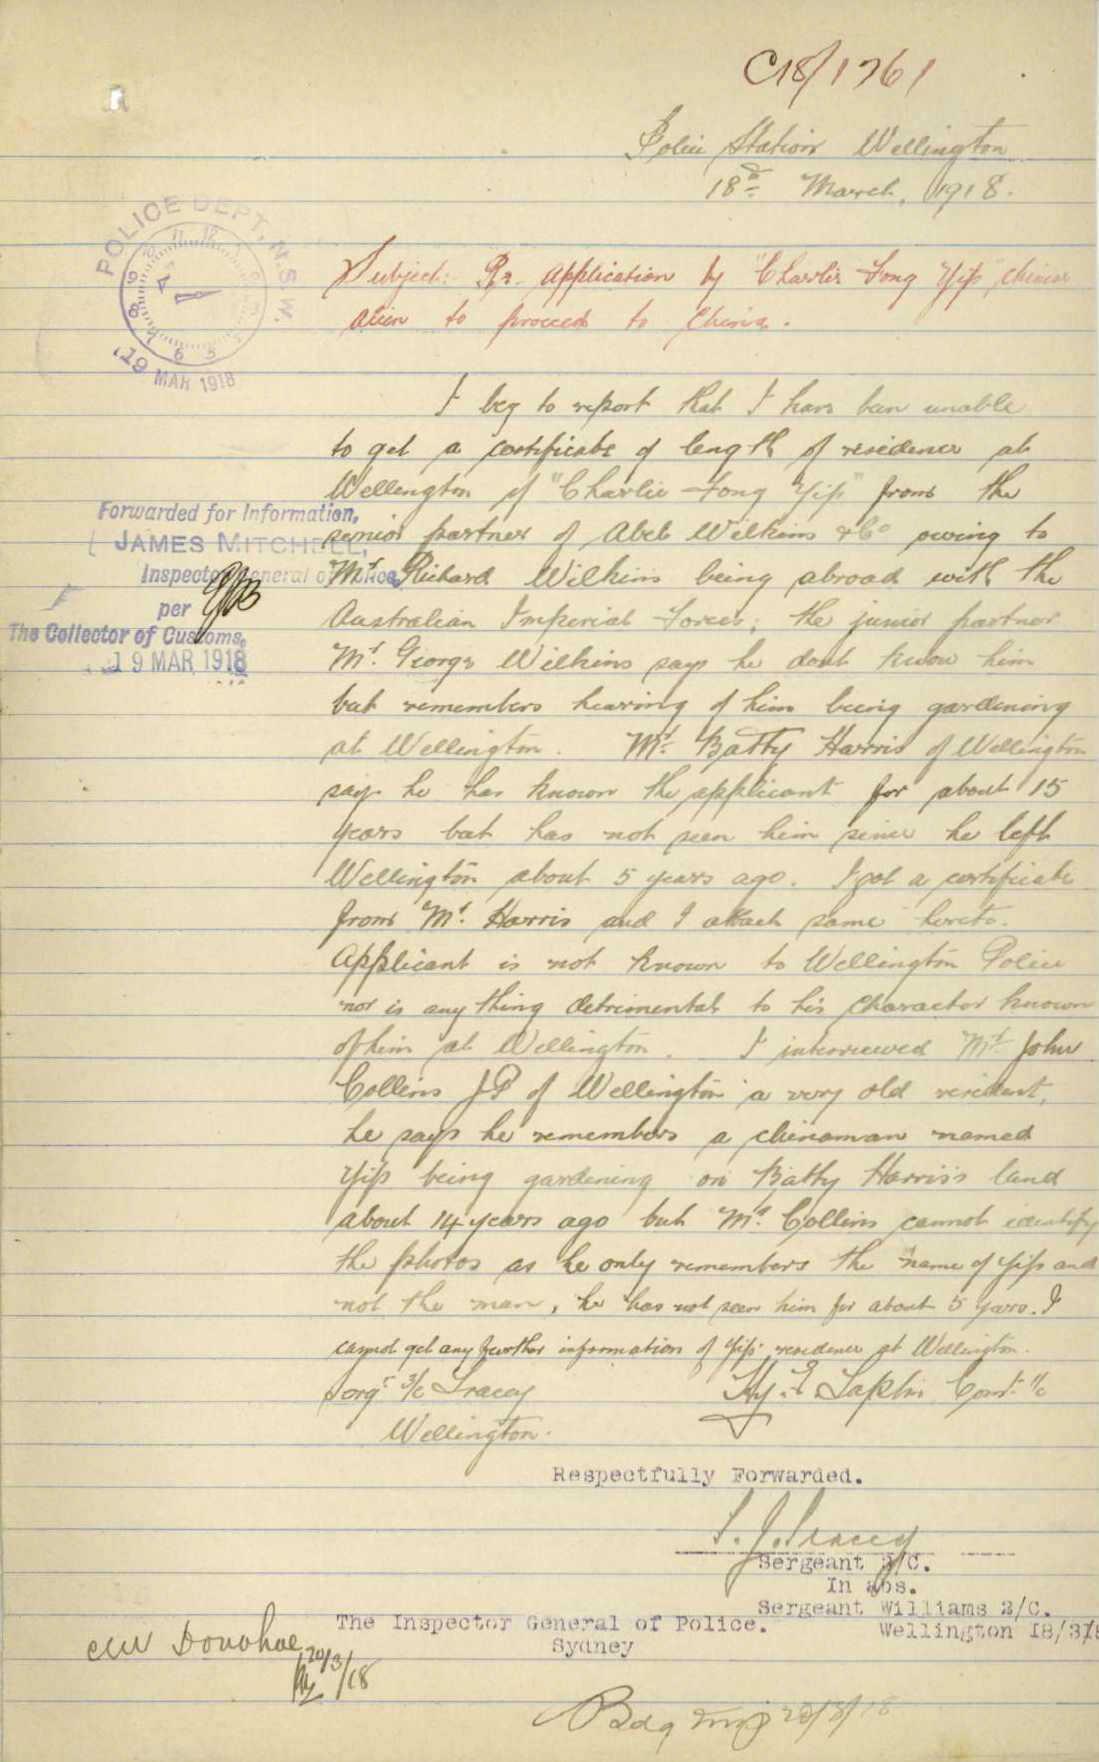 C18/1761
Police Station Wellington
18th March, 1918.
POLICE DEPT, N.S.W.
19 MAR 1918
Subject:- Re Application by "Charlie Fong Yip" Chinese
alien to proceed to China.
I beg to report that I have been unable
to get a certificate of length of residence at
Wellington of "Charlie Fong Yip" from the
senior partner of Abeb Wilkins & Co owing to
Mr. Richard Wilkins being abroad with the
Australian Imperial Forces; the junior partner
Mr. George Wilkins says he dont know him
but remembers hearing of him being gardening
at Wellington. Mr. Batty Harris of Wellington
says he has known the applicant for about 15
years but has not seen him since he left
Wellington about 5 years ago. I got a certificate
from Mr. Harris and I attach same hereto.
Applicant is not known to Wellington Police
nor is any thing detrimental to his character known
of him at Wellington. I interviewed Mr. John
Collins J.P. of Wellington a very old resident,
he says he remembers a chinaman named
Yip being gardening on Batty Harris's land
about 14 years ago but Mr. Collins cannot identify
the photos as he only remembers the name of Yip and
not the man, he has not seen him for about 5 years. I
cannot get any further information of Yip's residence at Wellington.
Forwarded for Information,
JAMES MITCHELL,
Inspector General of Police,
per
The Collector of Customs.
19 MAR 1918
Sergt 3/c Tracey
Wellington.
Const. 1/c
Respectfully Forwarded.
S. J. Tracey
Sergeant 3/C.
In abs.
Sergeant Williams 2/C.
Wellington 18/3/18
The Inspector General of Police.
Sydney
Donohoe
20/3/18
20/3/18